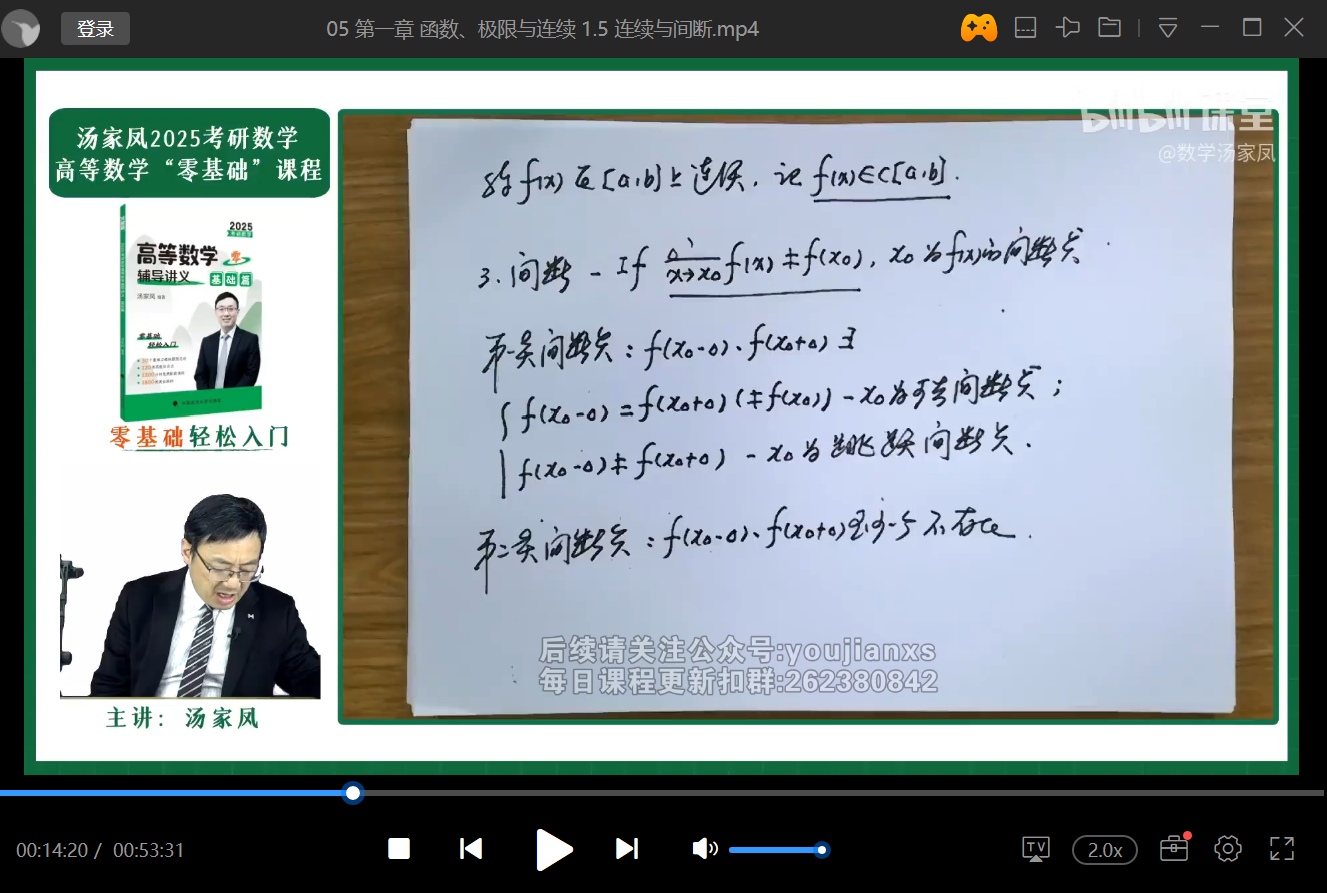 登录
05 第一章 函数、极限与连续 1.5 连续与间断.mp4
汤家凤2025考研数学
高等数学“零基础”课程
2025
高等数学 零
辅导讲义 基础篇
汤家凤
零基础
轻松入门
零基础轻松入门
主讲：汤家凤
bilibili课堂
@数学汤家凤
称f(x)在[a,b]上连续，记f(x)∈C[a,b].
3.间断 - If lim x→x₀ f(x)≠f(x₀), x₀为f(x)的间断点
第一类间断点：f(x₀-0)、f(x₀+0)∃
{ f(x₀-0)=f(x₀+0)(≠f(x₀)) - x₀为可去间断点；
f(x₀-0)≠f(x₀+0) - x₀为跳跃间断点.
第二类间断点：f(x₀-0)、f(x₀+0)至少一个不存在.
后续请关注公众号:youjianxs
每日课程更新扣群:262380842
00:14:20 / 00:53:31
TV
2.0x